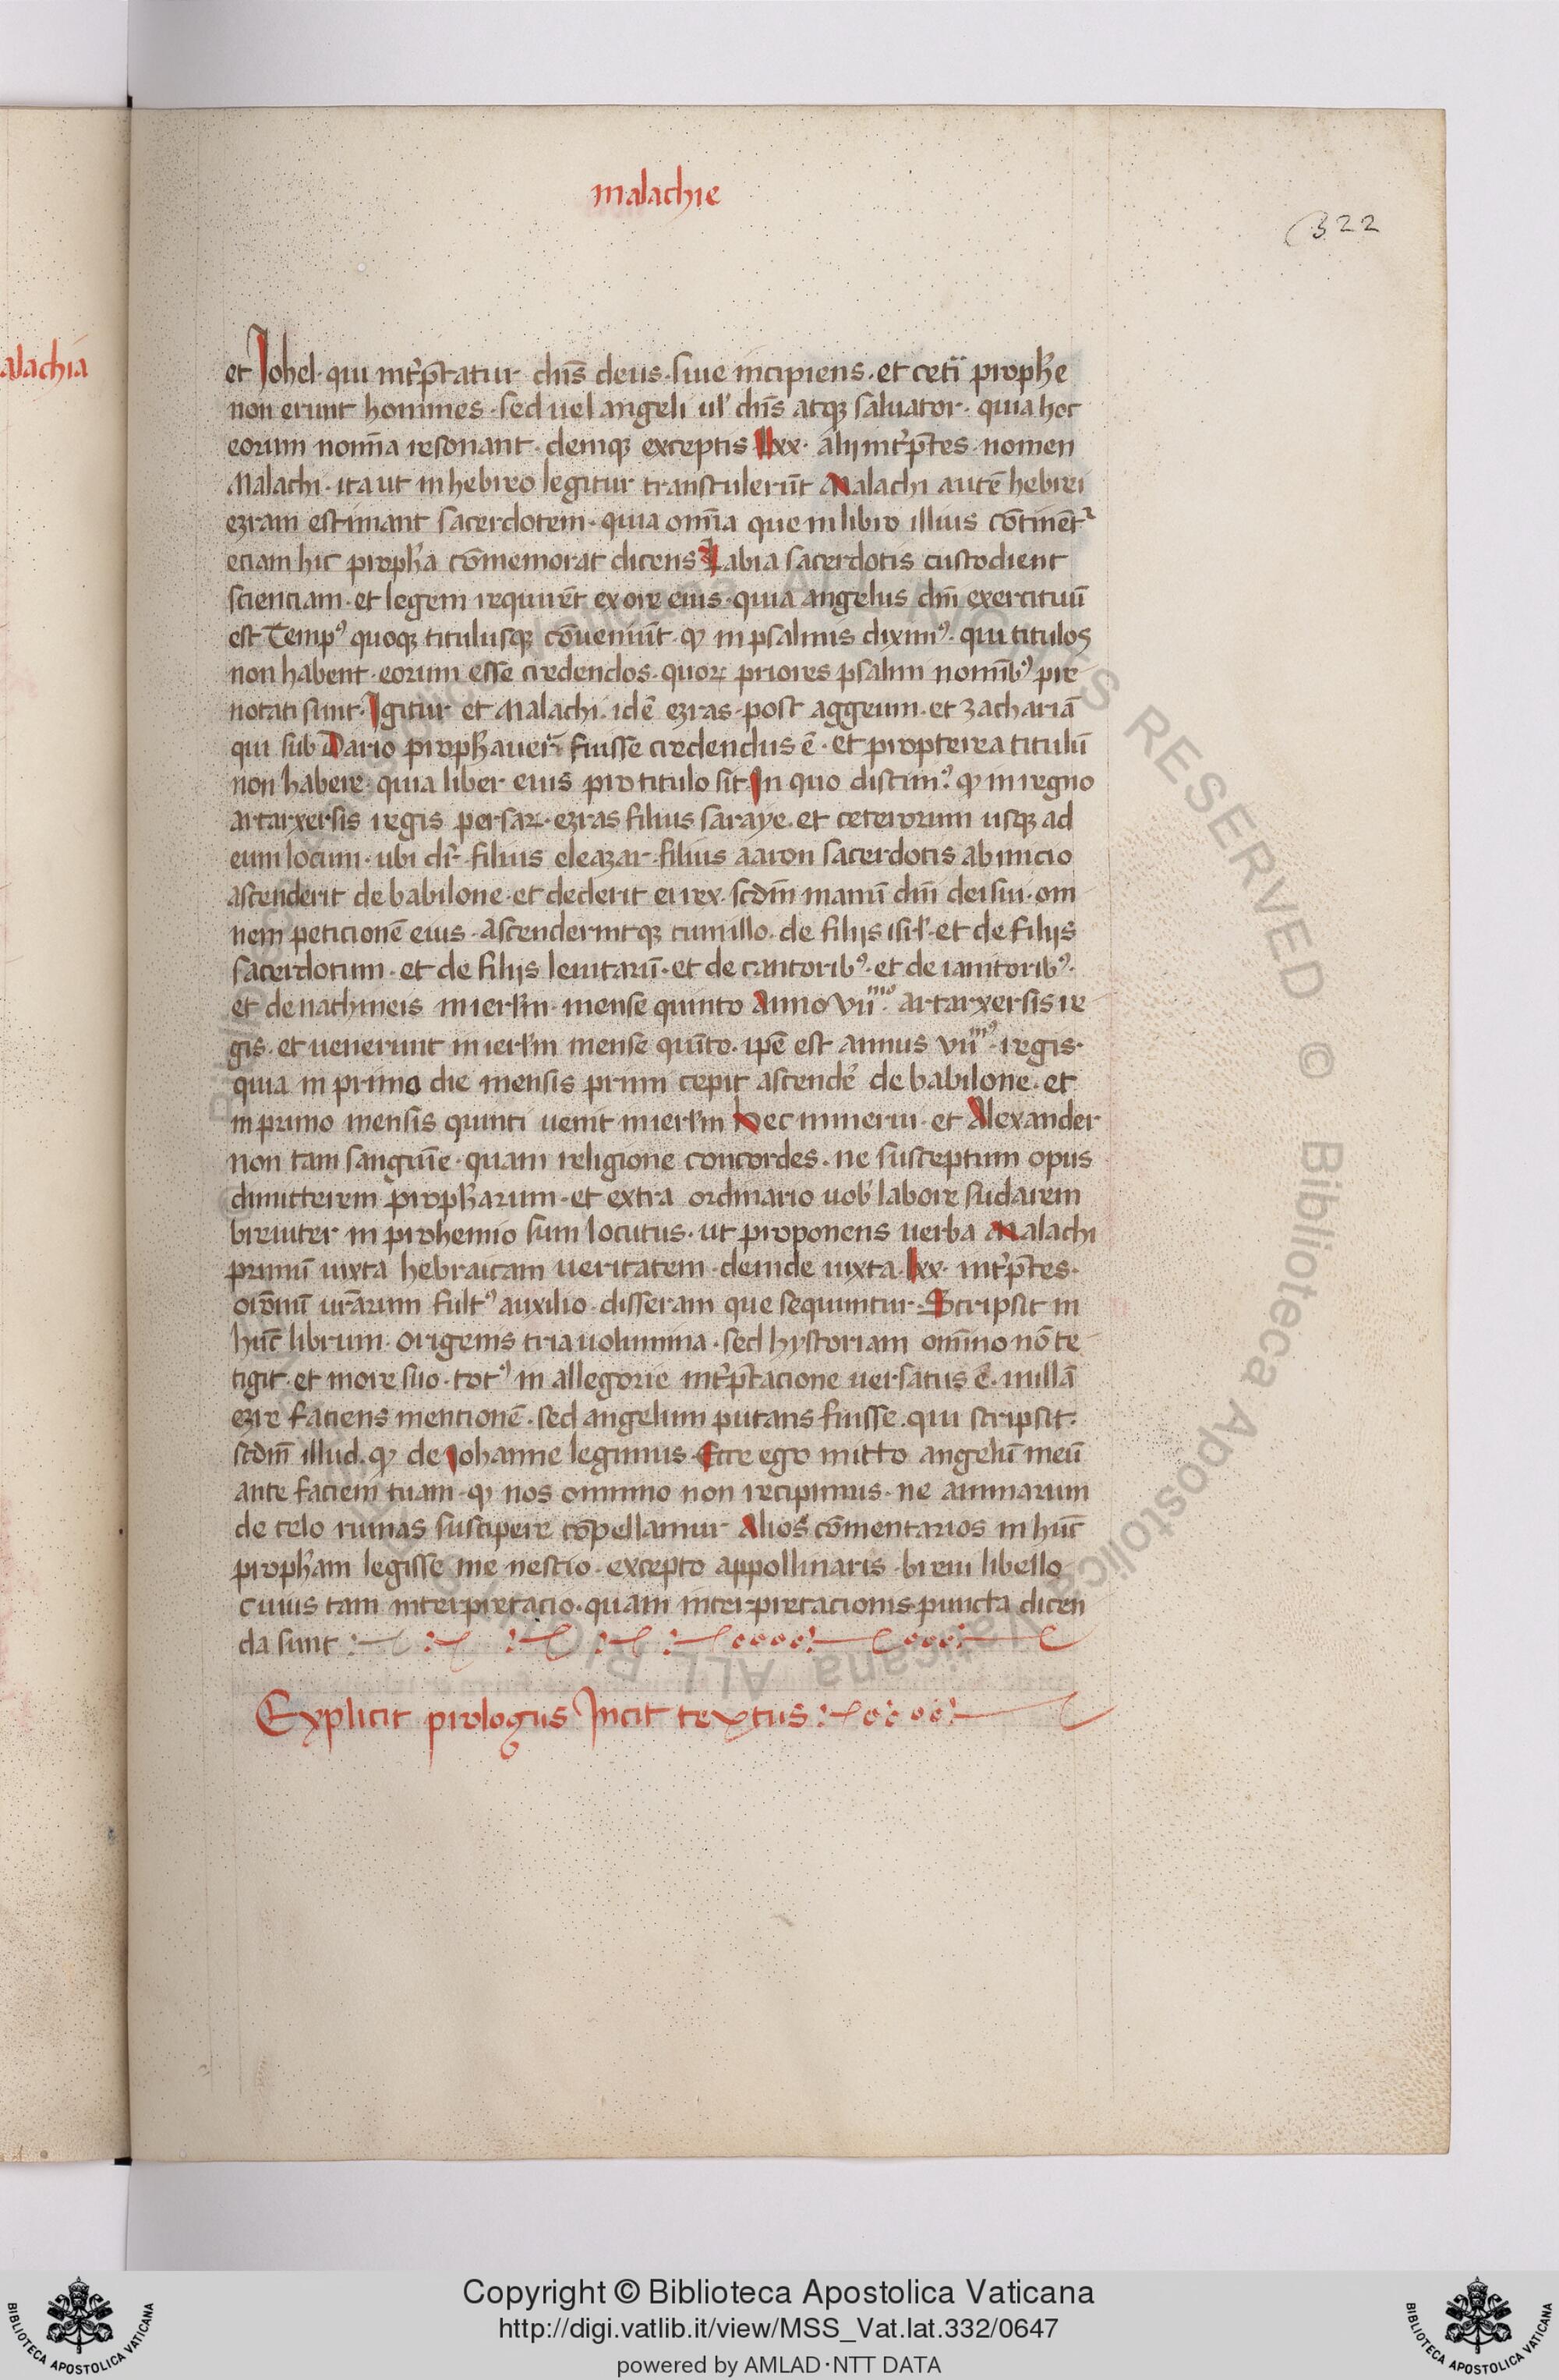 malachie
322
alachia
et Johel · qui int̾p̄tatur dn̄s deus · siue incipiens · et cet̾i prophe
non erunt homines · sed uel angeli ul̾ dn̄s atqꝫ saluator · quia hoc
eorum nom̄a resonant · deniqꝫ exceptis lxx · alij int̾p̄tes · nomen
Malachi · ita ut in hebreo legitur transtulerūt Malachi autē hebrei
ezram estimant sacerdotem · quia om̄a que in libro illius cōtinēt᷑
eciam hic proph̄a cōmemorat dicens Labia sacerdotis custodient
scienciam · et legem requirēt ex ore eius · quia angelus dn̄i exercituū
est Tempꝰ quoqꝫ titulusqꝫ cōueniūt · qꝫ in psalmis diximꝰ · qui titulos
non habent · eorum esse credendos · quoꝝ priores psalmi nomībꝰ pre
notati sunt · Igitur et Malachi · idē ezras · post aggeum · et zachariā
qui sub Dario proph̄auer̄ fuisse credendus ē · et propterea titulū
non habere · quia liber eius pro titulo sit In quo discimꝰ · qꝫ in regno
artarxersis regis persaꝝ · ezras filius saraye · et ceterorum usqꝫ ad
eum locum · ubi dr̄ · filius eleazar · filius aaron sacerdotis ab inicio
ascenderit de babilone · et dederit ei rex · scdm̄ manū dn̄i dei sui · om
nem peticionē eius · ascenderintqꝫ cum illo · de filijs isr̄l · et de filijs
sacerdotum · et de filijs leuitarū · et de cantoribꝰ · et de ianitoribꝰ ·
et de nathineis in ierl̄m · mense quinto Anno vii^mo · artarxersis re
gis · et uenerunt in ierl̄m mense quīto · ip̄e est annus vii^mꝰ · regis ·
quia in primo die mensis primi cepit ascende᷑ de babilone · et
in primo mensis quinti uenit in ierl̄m Hec minerui · et Alexander
non tam sanguīe · quam religione concordes · ne susceptum opus
dimitterem proph̄arum · et extra ordinario uob̾ labore sudarem
breuiter in prohemio sum locutus · ut proponens uerba Malachi
primū iuxta hebraicam ueritatem · deinde iuxta · lxx · int̾p̄tes ·
or̄onū ur̄arum fultꝰ auxilio · disseram que sequuntur · Scripsit in
hūc librum · origenis tria uolumina · sed hystoriam om̄ino nō te
tigit · et more suo · totꝰ in allegorie int̾p̄tacione uersatus ē · nullā
ezre faciens mentionē · sed angelum putans fuisse · qui scripsit ·
scdm̄ illud · qꝫ de Johanne legimus · Ecce ego mitto angelū meū
ante faciem tuam · qꝫ nos omnino non recipimus · ne animarum
de celo ruinas suscipere cōpellamur Alios cōmentarios in hūc
proph̄am legisse me nescio · excepto appollinaris · breui libello
cuius tam interpretacio · quam interpretacionis puncta dicen
da sunt
Explicit prologus Incit textus
Copyright © Biblioteca Apostolica Vaticana
http://digi.vatlib.it/view/MSS_Vat.lat.332/0647
powered by AMLAD·NTT DATA